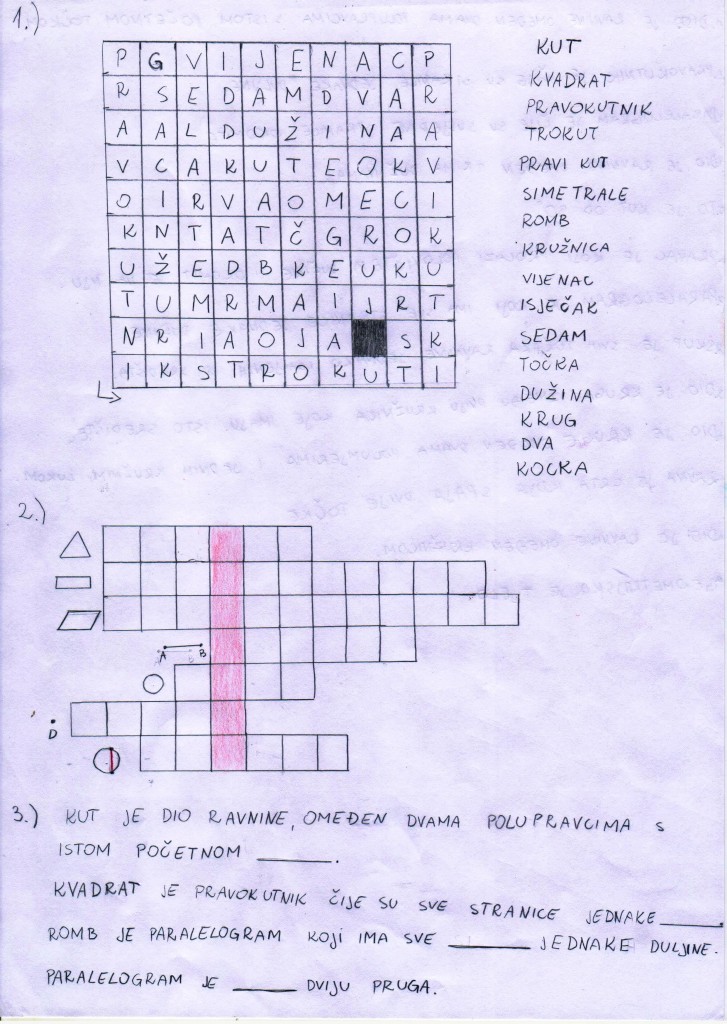 1.)
P G V I J E N A C P
R S E D A M D V A R
A A L D U Ž I N A A
V C A K U T E O K V
O I R V A O M E C I
K N T A T Č G R O K
U Ž E D B K E U K U
T U M R M A I J R T
N R I A O J A S K
I K S T R O K U T I
KUT
KVADRAT
PRAVOKUTNIK
TROKUT
PRAVI KUT
SIMETRALE
ROMB
KRUŽNICA
VIJENAC
ISJEČAK
SEDAM
TOČKA
DUŽINA
KRUG
DVA
KOCKA
2.)
A B
D
3.) KUT JE DIO RAVNINE, OMEĐEN DVAMA POLUPRAVCIMA S
ISTOM POČETNOM ______.
KVADRAT JE PRAVOKUTNIK ČIJE SU SVE STRANICE JEDNAKE ______.
ROMB JE PARALELOGRAM KOJI IMA SVE ______ JEDNAKE DULJINE.
PARALELOGRAM JE ______ DVIJU PRUGA.